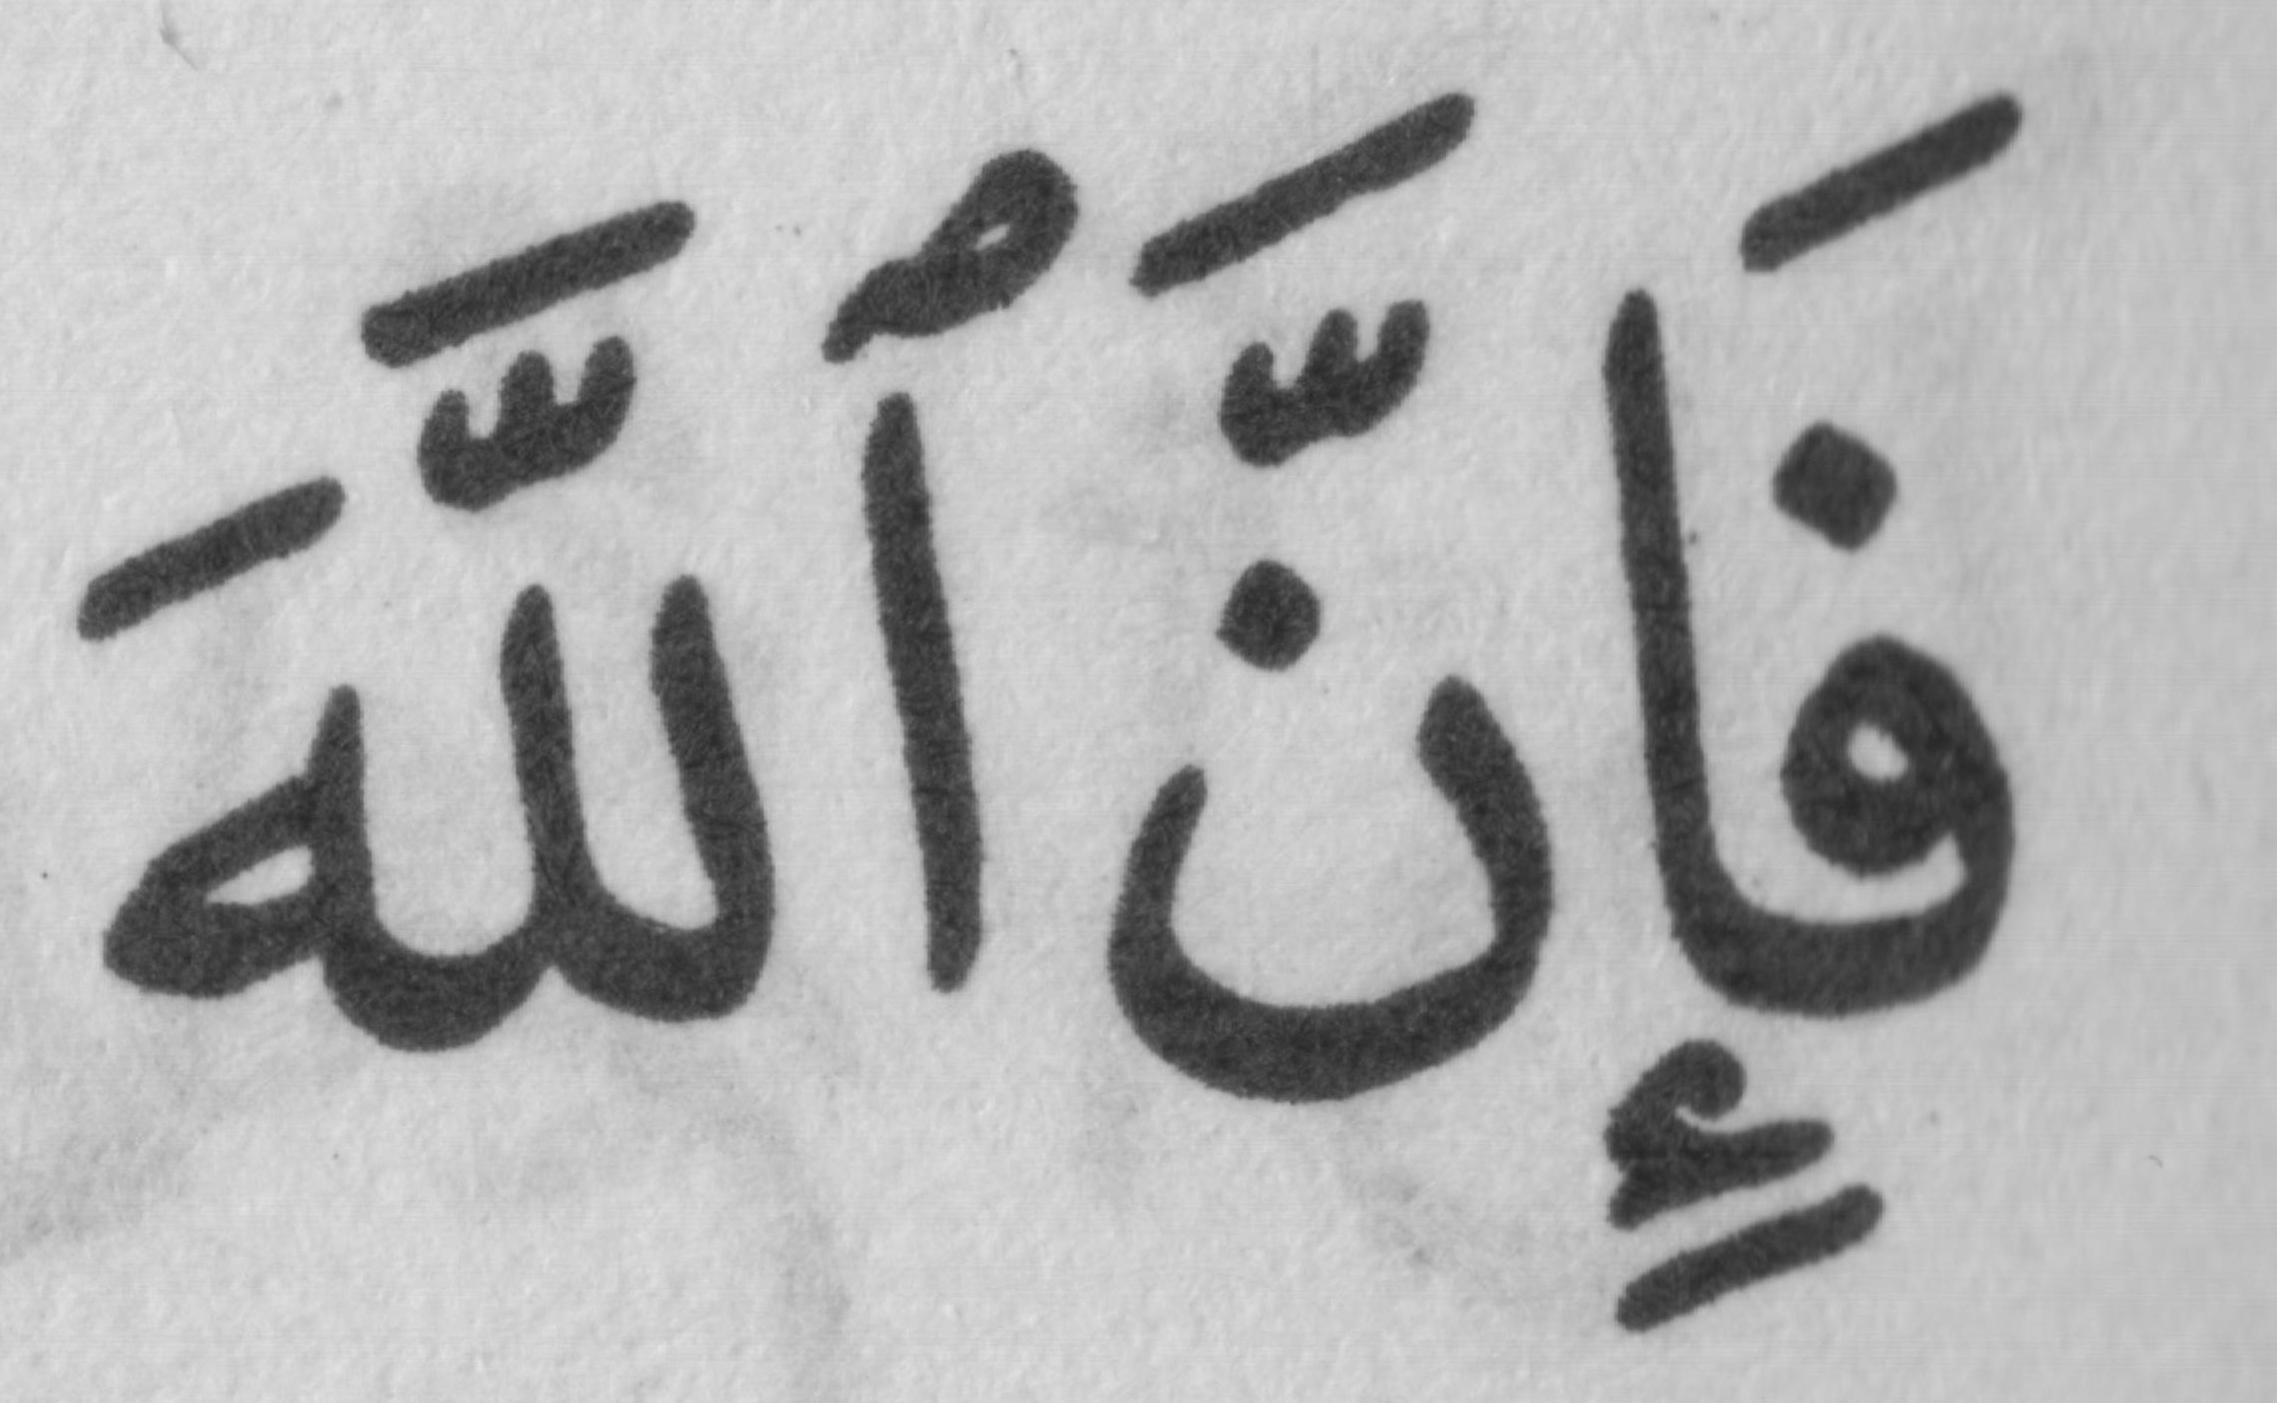 فَإِنَّ ٱللَّهَ